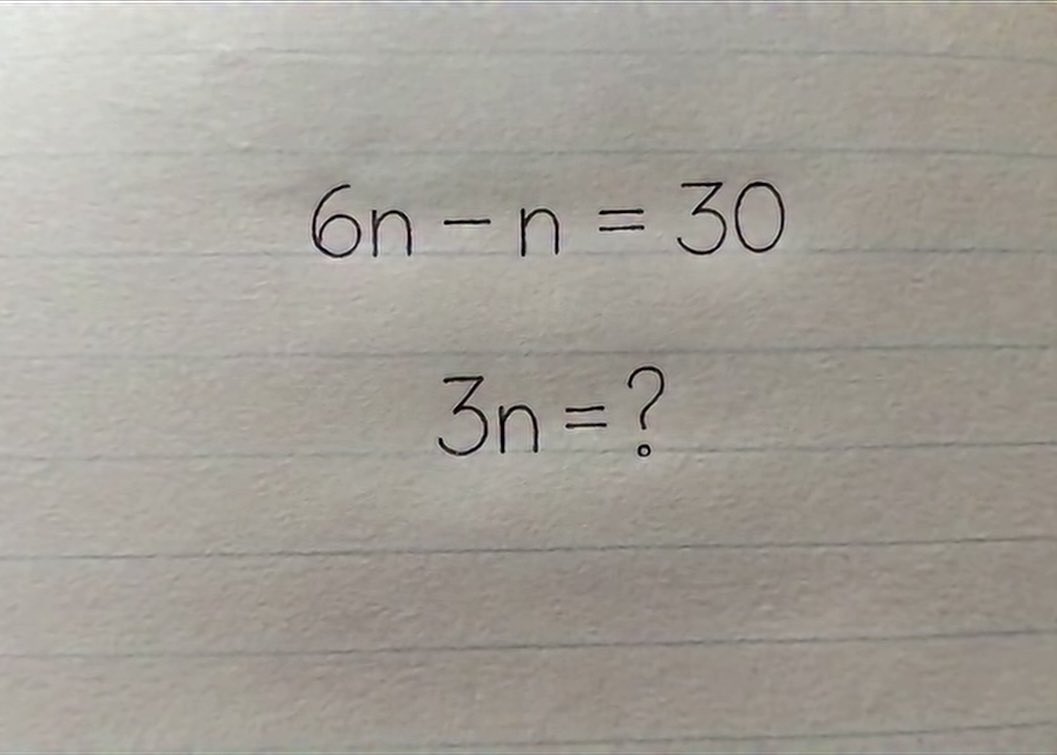 6n – n = 30
3n = ?